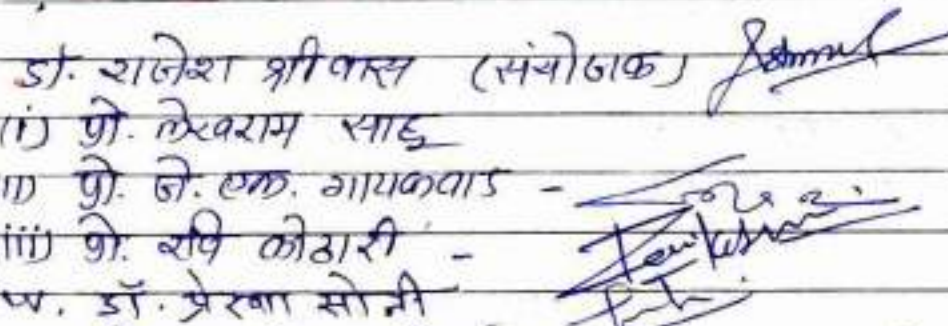 डॉ. राजेश श्रीवास (संयोजक)
(i) प्रो. लेखराम साहू
ii) प्रो. जे. एल. गायकवाड -
iii) प्रो. रवि कोठारी -
iv. डॉ. प्रेरणा सोनी